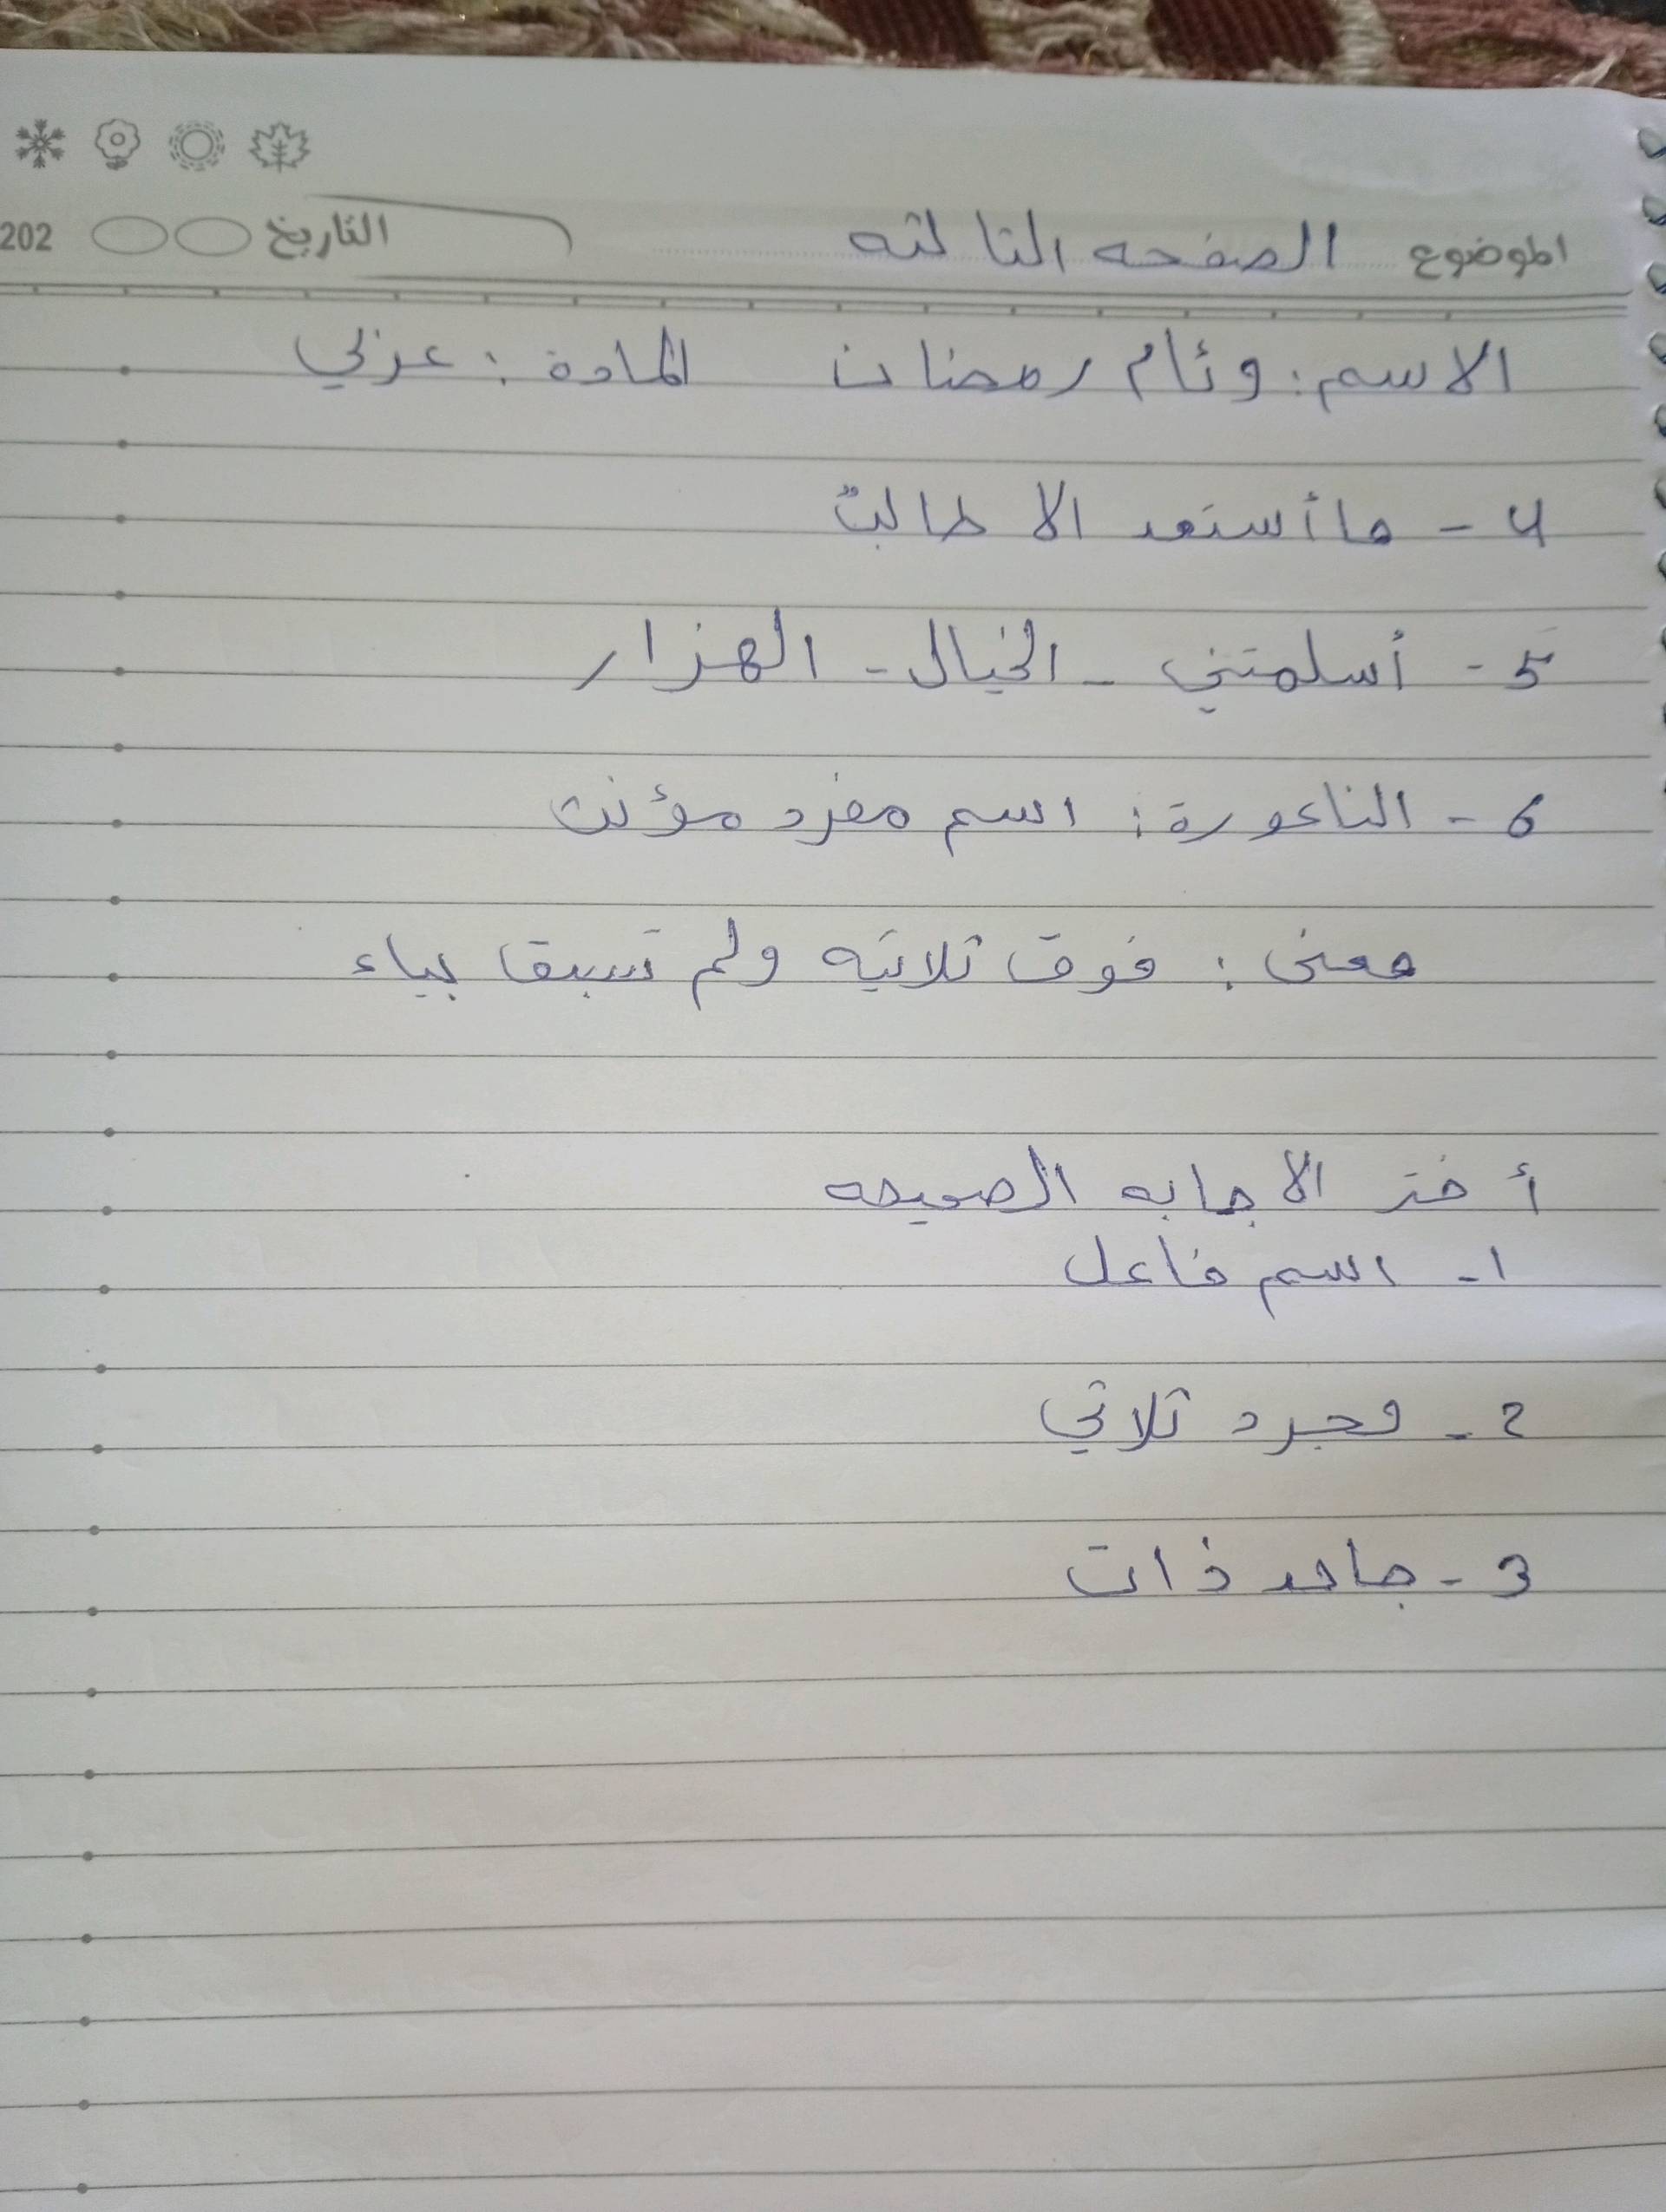 الموضوع الصفحه التالته التاريخ 202
الاسم: وئام رمضان المادة: عربي
4 - ما أستعد الا طالبٌ
5 - أسلمتني - الخيال - الهزار
6 - الناعورة: اسم مفرد مؤنث
معنى: فوق ثلاثيه ولم تسبق بياء
أختر الاجابه الصحيحه
1 - اسم فاعل
2 - مجرد ثلاثي
3 - جامد ذات